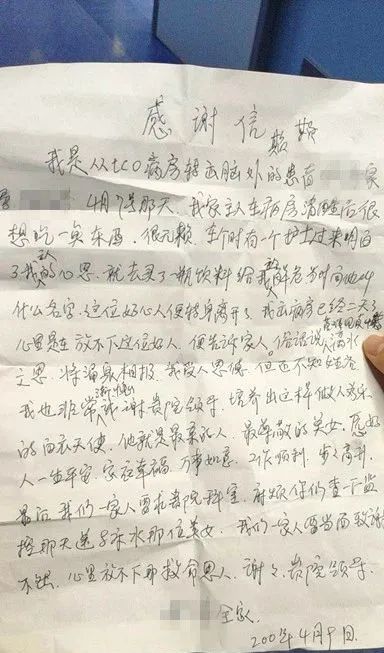 感谢信
我是从ICO病房转去脑外的患者 家
4月7号那天,我家主人在病房清醒后很
想吃一点东西,很无赖,当时有一个护士过来明白
了我的心思,就去买了一瓶饮料给我解危当时问她叫
什么名字,这位好心人便转身离开了,我出病房已经二天了
心里是在放不下这位好人,便告诉家人,俗话说:滴水
之恩,将涌泉相报,我受人恩德,但还不知姓名
我也非常感谢贵院领导,培养出这样做人善乐
的白衣天使,她就是最美的人,最尊敬的美女,愿好
人一生平安,家庭幸福,万事如意,工作顺利,步步高升,
最后我们一家人要求贵院科室,麻烦你们查一下监
控那天送子水水那位美女,我们一家人要当面致谢
不然,心里放不下那救命恩人,谢谢,贵院领导。
全家
200年4月9日